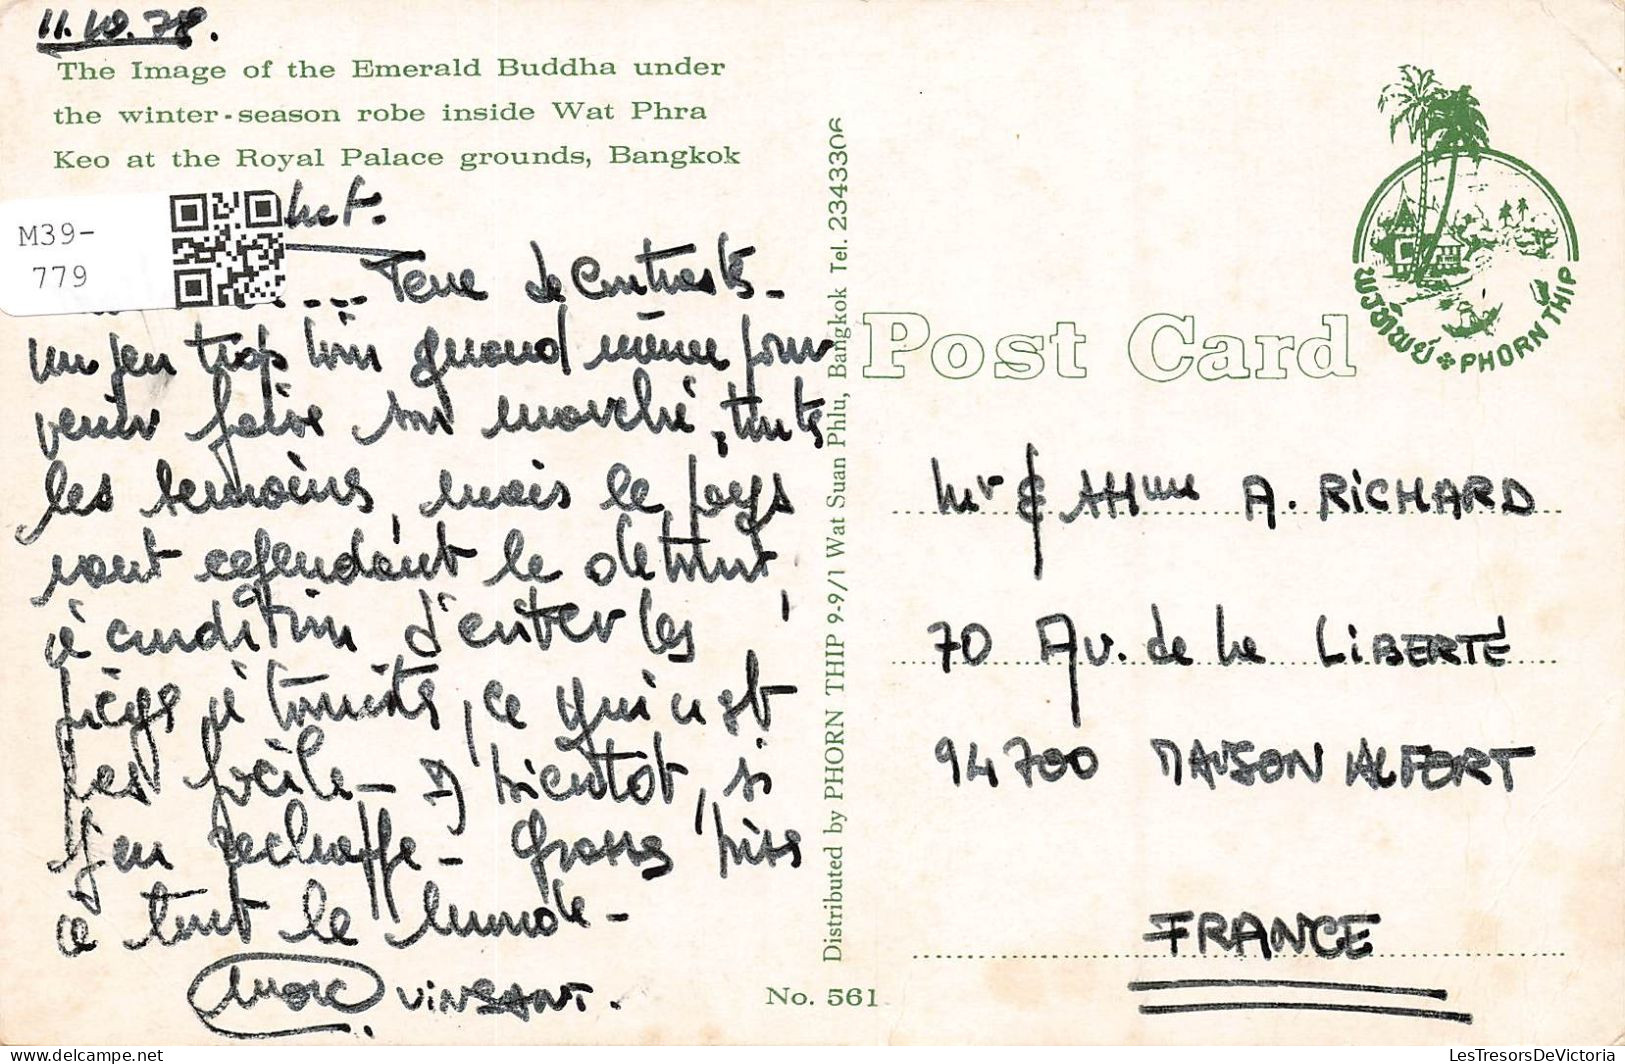 11.10.78.
The Image of the Emerald Buddha under
the winter-season robe inside Wat Phra
Keo at the Royal Palace grounds, Bangkok
M39-
779
... Terre de Contrastes -
un peu trop loin quand même pour
venir faire son marché, toutes
les semaines, mais le pays
vaut cependant le détour,
à condition d'éviter les
pièges à touristes, ce qui n'est
pas facile - à bientôt, si
j'en réchappe - Grosses bises
à tout le monde -
Marc VINSANT.
No. 561
Distributed by PHORN THIP 9-9/1 Wat Suan Phlu, Bangkok Tel. 2343306
Post Card
พรทิพย์ PHORN THIP
Mr & Mme A. RICHARD
70 Av. de la LIBERTÉ
94700 MAISON ALFORT
FRANCE
LesTresorsDeVictoria